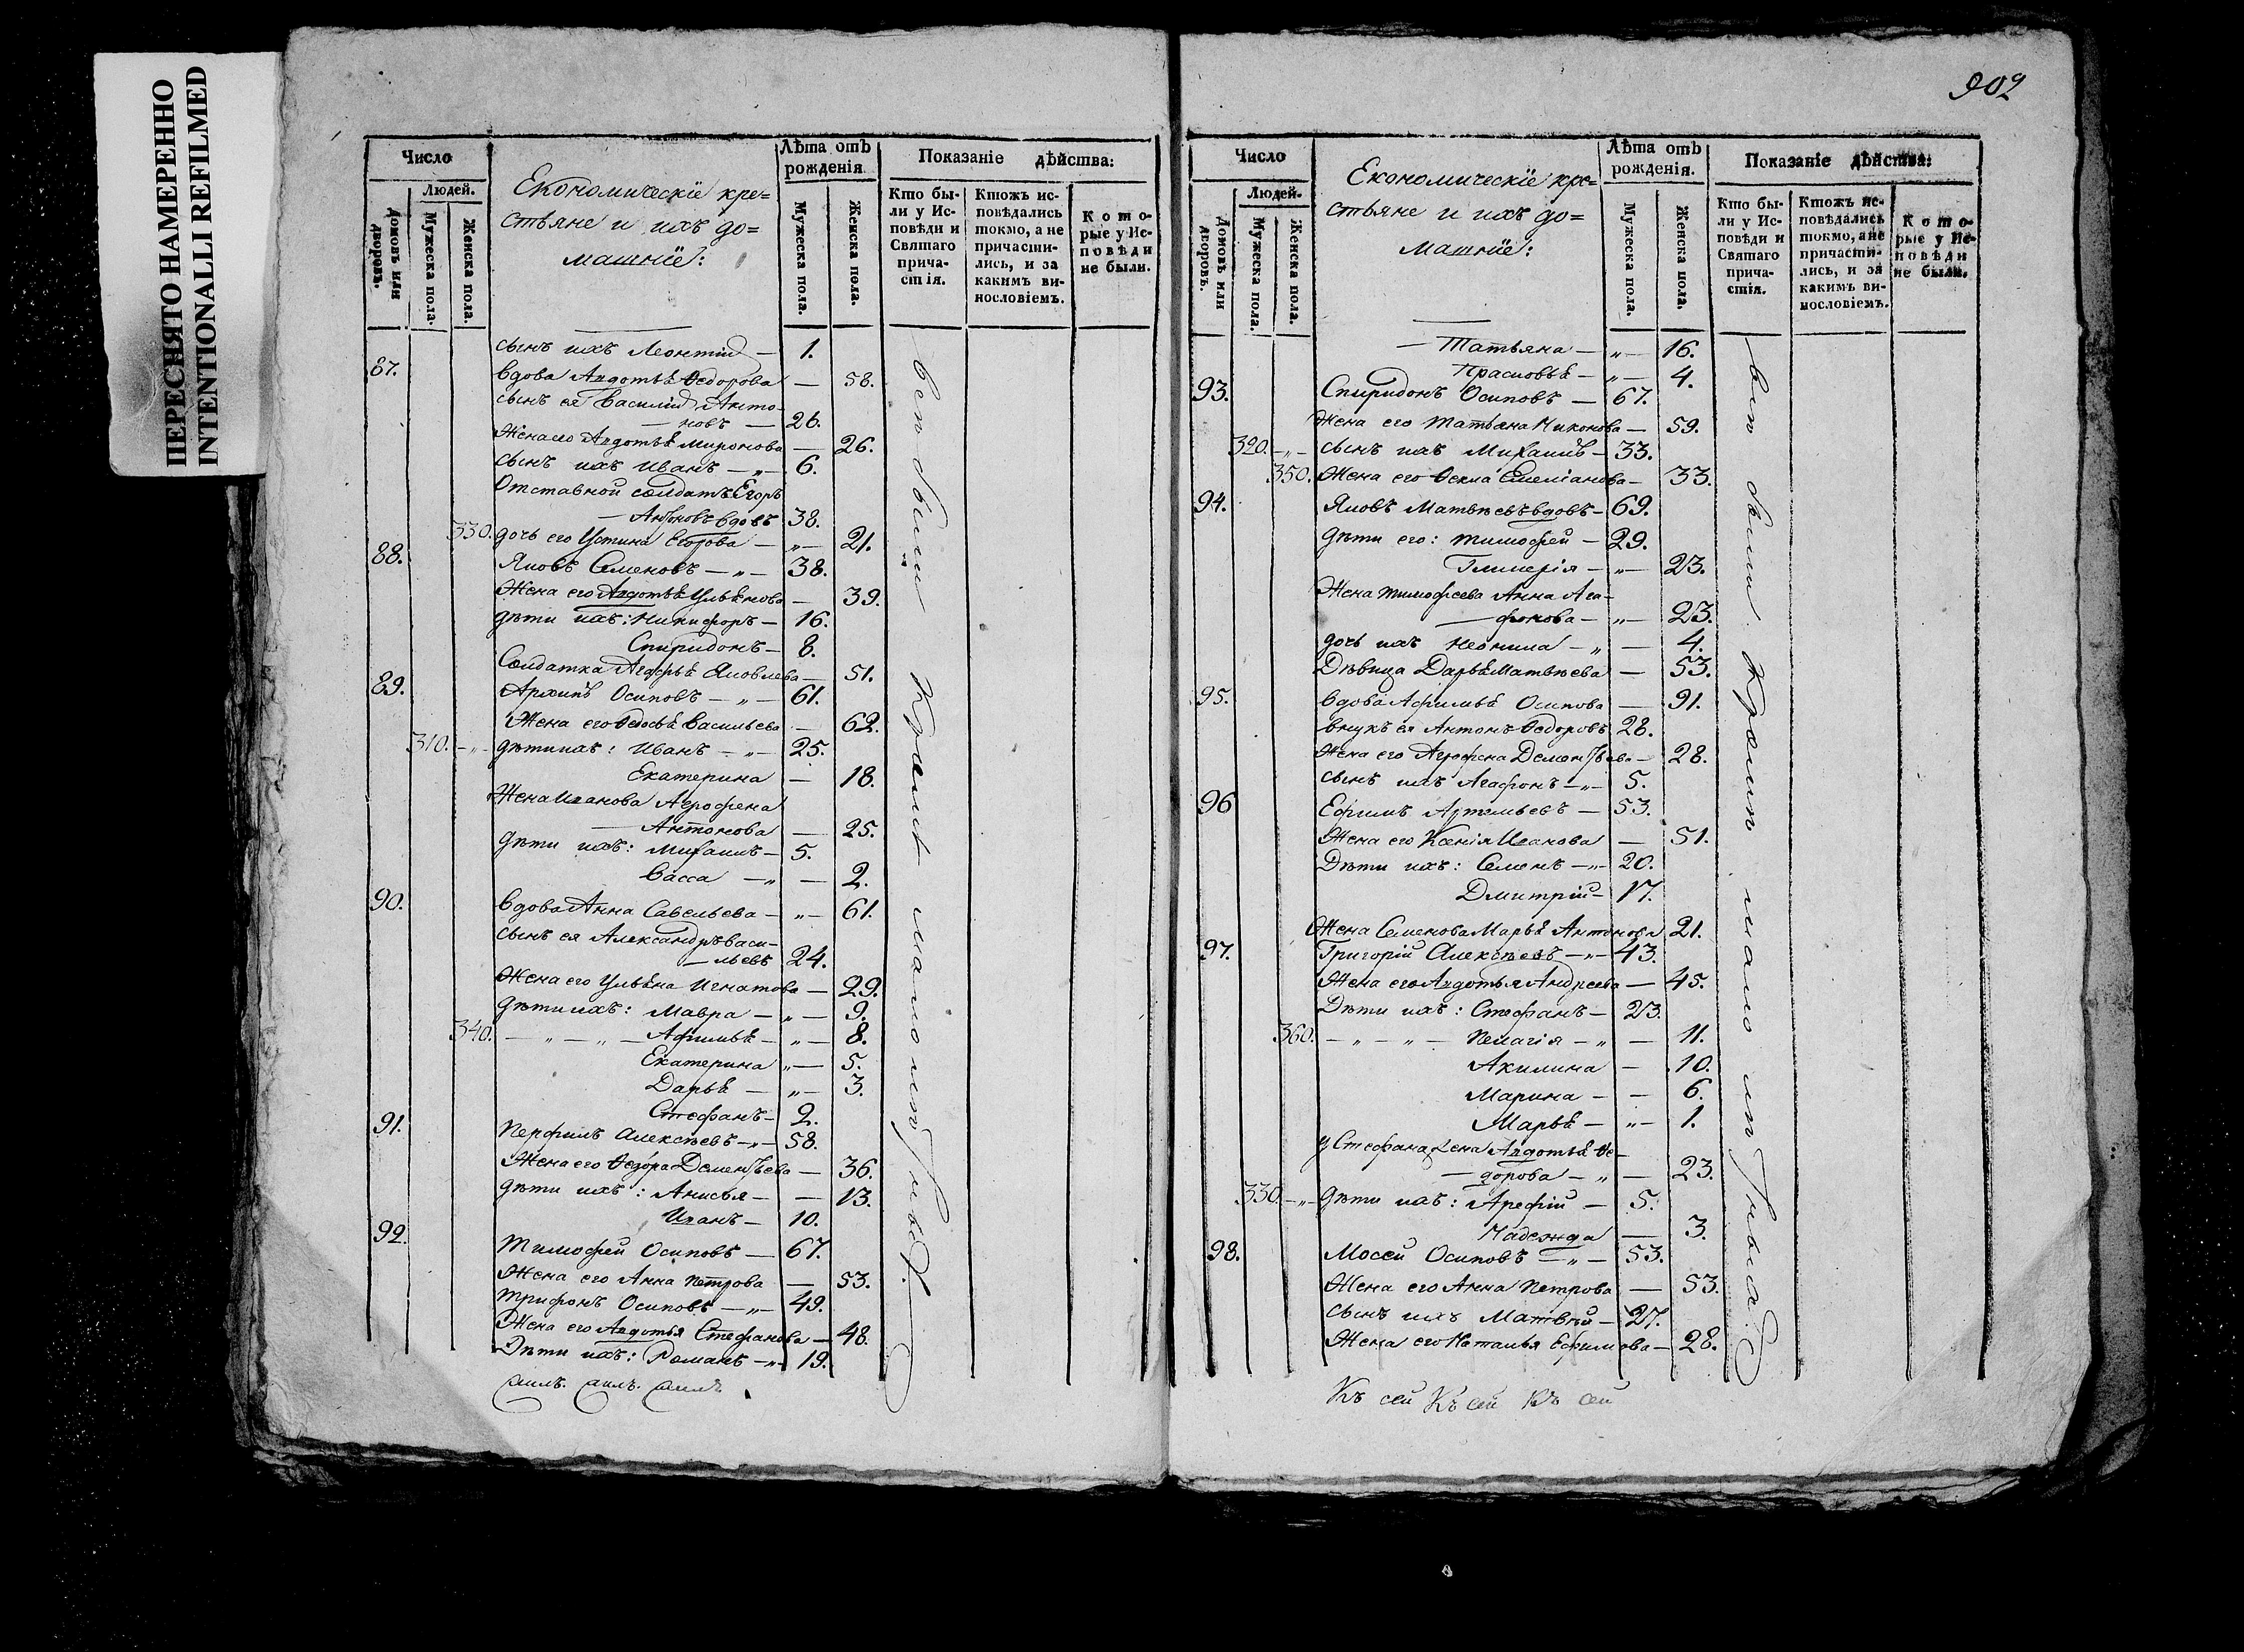 ПЕРЕСНЯТО НАМЕРЕННО
INTENTIONALLI REFILMED
Число
Людей.
Домовъ или дворовъ.
Мужеска пола.
Женска пола.
Економическіе кре=
стьяне и ихъ до=
машніе:
Лѣта отъ рожденія
Мужеска пола.
Женска пола.
Показаніе дѣйства:
Кто были у Исповѣди и Святаго причастія.
Ктожъ исповѣдались токмо, а не причастились, и за какимъ винословіемъ.
Которые у Исповѣди не были.
сынъ ихъ Леонтій — 1.
87. вдова Авдотьѣ Ѳедорова — 58.
сынъ ея Василій Анто-
— новъ — 26.
Жена его Авдотьѣ Миронова — 26.
сынъ ихъ Иванъ — „ — 6.
Отставной солдатъ Егоръ
— вдовъ 38.
330. дочь его Устина Егорова — „ — 21.
88. Яковъ Семеновъ — „ — 38.
Жена его Авдотьѣ Ульѣнова — 39.
дѣти ихъ: Никифоръ — 16.
Спиридонъ — 8.
Солдатка Агафьѣ Яковлева — 51.
89. Архипъ Осиповъ — „ — 61.
Жена его Ѳедосьѣ Васильева — 62.
310. — „ — дѣти ихъ: Иванъ — „ — 25.
Екатерина — 18.
Жена Иванова Агрофена
— Антонова — 25.
дѣти ихъ: Михаилъ — 5.
Васса — „ — 2.
90. вдова Анна Савельева — „ — 61.
сынъ ея Александръ Васи-
— льевъ 24.
Жена его Ульѣна Игнатова — 29.
дѣти ихъ: Мавра — „ — 9.
340. — „ — „ — Афимьѣ — „ — 8.
Екатерина „ — 5.
Дарьѣ — „ — 3.
Стефанъ — 2.
91. Перфилъ Алексѣевъ — „ — 58.
Жена его Ѳедора Дементьева — 36.
дѣти ихъ: Анисья — — 13.
Иванъ — 10.
92. Тимофей Осиповъ — 67.
Жена его Анна Петрова — 53.
Трифонъ Осиповъ — „ — 49.
Жена его Авдотья Стефанова — 48.
Дѣти ихъ: Романъ — „ — 19.
всѣ были Кромѣ
902
Число
Людей.
Домовъ или дворовъ.
Мужеска пола.
Женска пола.
Економическіе кре=
стьяне и ихъ до=
машніе:
Лѣта отъ рожденія.
Мужеска пола.
Женска пола.
Показаніе дѣйства:
Кто были у Исповѣди и Святаго причастія.
Ктожъ исповѣдались токмо, а не причастились, и за какимъ винословіемъ.
Которые у Исповѣди не были.
— Татьяна — „ — 16.
Прасковьѣ — „ — 4.
93. Спиридонъ Осиповъ — 67.
Жена его Татьяна Никонова — 59.
320. — „ — сынъ ихъ Михаилъ — 33.
350. Жена его Ѳекла Емеліанова — 33.
94. Яковъ Матвѣевъ вдовъ — 69.
дѣти его: Тимофей — 29.
Гликерія — „ — 23.
Жена Тимофеева Анна Ага-
— фонова — „ — 23.
дочь ихъ Неонила — „ — 4.
Дѣвица Дарьѣ Матвѣева — 53.
95. вдова Афимьѣ Осипова — 91.
внукъ ея Антонъ Ѳедоровъ 28.
Жена его Агрофена Дементьева — 28.
сынъ ихъ Агафонъ — „ — 5.
96 Ефимъ Артемьевъ — 53.
Жена его Ксенія Иванова — 51.
Дѣти ихъ: Семенъ — „ — 20.
Дмитрій — 17.
Жена Семенова Марьѣ Антонова 21.
97. Григорій Алексѣевъ — „ — 43.
Жена его Авдотья Андреева — 45.
Дѣти ихъ: Стефанъ — 23.
360. — „ — „ — Пелагія — „ — 11.
Акилина — 10.
Марина — — 6.
Марьѣ — „ — 1.
у Стефана жена Авдотьѣ Ѳе-
— дорова — „ — 23.
330. — „ — дѣти ихъ: Арефій — 5.
Надежда — 3.
98. Мосей Осиповъ — „ — 53.
Жена его Анна Петрова — 53.
сынъ ихъ Матвѣй — 27.
Жена его Наталья Ефимова — 28.
всѣ были Кромѣ
Къ сей Къ сей Къ сей